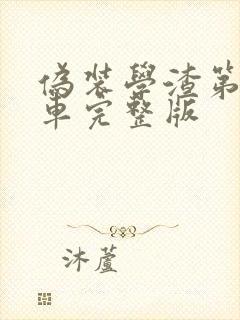 偽裝學渣第
車完整版
沐蘆